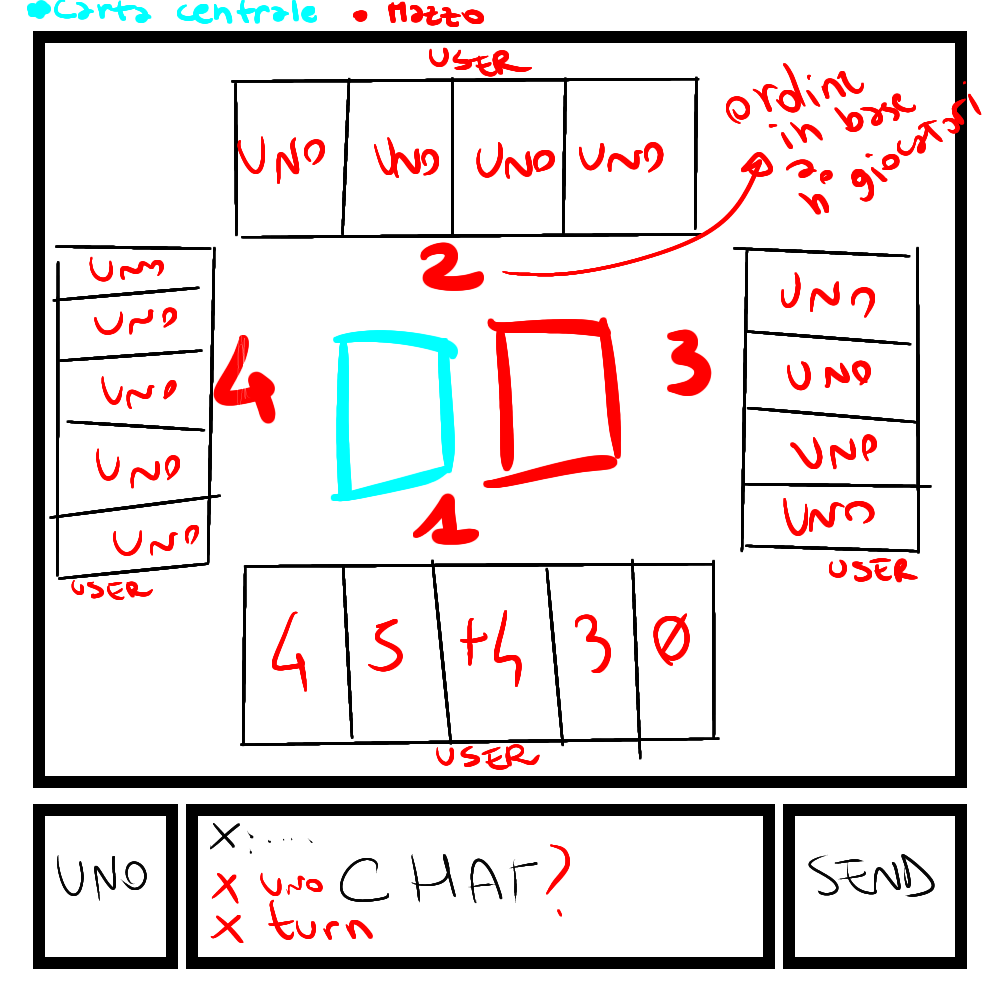 Carta centrale • Mazzo
USER
UNO UNO UNO UNO
ordine
in base
ao
n° giocatori
2
UNO
UNO
UNO
UNO
UNO
USER
4
3
UNO
UNO
UNO
UNO
USER
1
4 5 +4 3 0
USER
UNO
X:....
X UNO
X turn
CHAT?
SEND